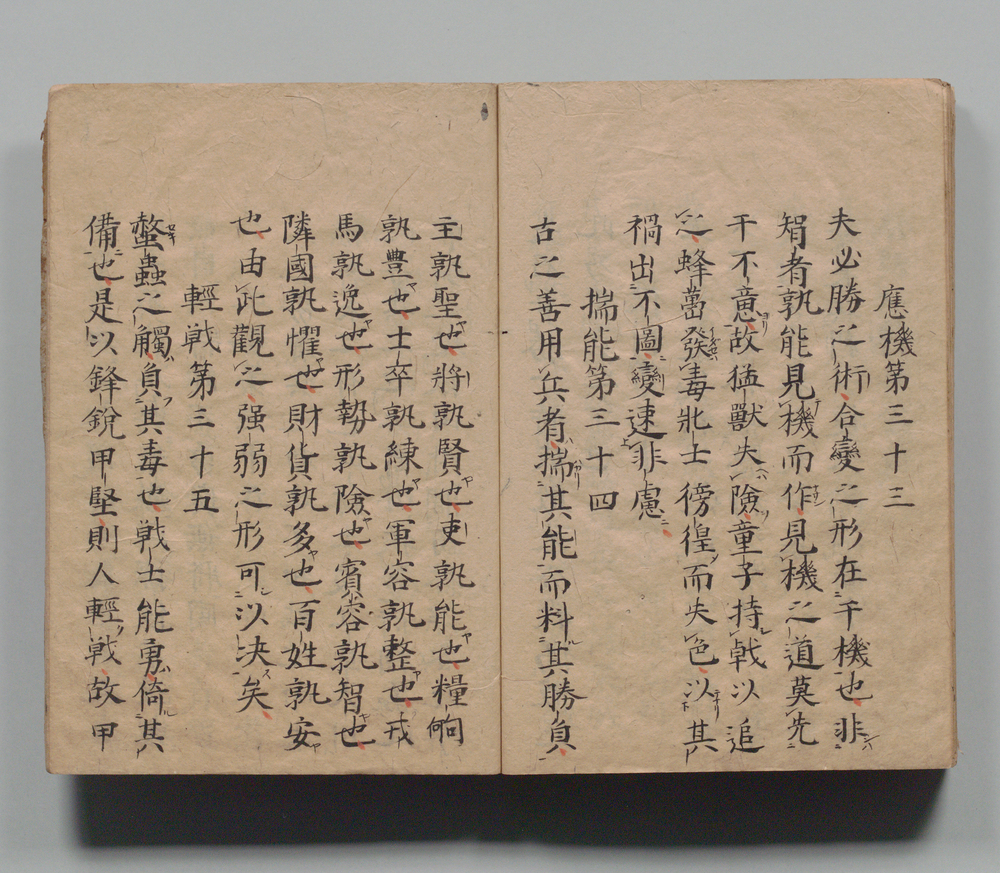 應機第三十三
夫必勝之術合變之形在于機也非
智者孰能見機而作見機之道莫先
于不意故猛獸失險童子持戟以追
之蜂蠆發毒壯士徬徨而失色以其
禍出不圖變速非慮
揣能第三十四
古之善用兵者揣其能而料其勝負
主孰聖也將孰賢也吏孰能也糧餉
孰豐也士卒孰練也軍容孰整也戎
馬孰逸也形勢孰險也賓客孰智也
隣國孰懼也財貨孰多也百姓孰安
也由此觀之强弱之形可以决矣
輕戦第三十五
螫蟲之觸負其毒也戦士能勇倚其
備也是以鋒銳甲堅則人輕戦故甲